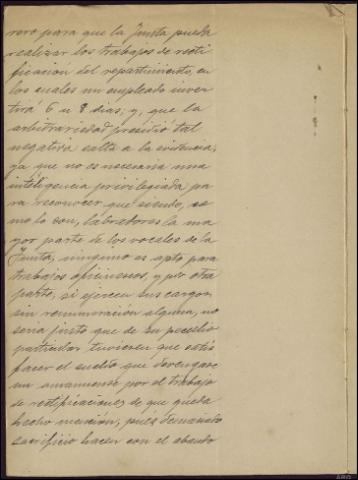 rero para que la Junta pueda
realizar los trabajos de recti
ficación del repartimiento, en
los cuales un empleado inver
tirá 6 u 8 dias; y, que la
arbitrariedad presidió tal
negativa salta a la evidencia,
ya que no es necesaria una
inteligencia privilegiada pa
ra reconocer que siendo, co
mo lo son, labradores la ma
yor parte de los vocales de la
Junta, ninguno es apto para
trabajos oficinescos, y por otra
parte, si ejercen sus cargos
sin remuneración alguna, no
seria justo que de su peculio
particular tuviesen que satis
facer el sueldo que devengase
un amanuense por el trabajo
de rectificaciones de que queda
hecho mención, pues demasiado
sacrificio hacen con el abando